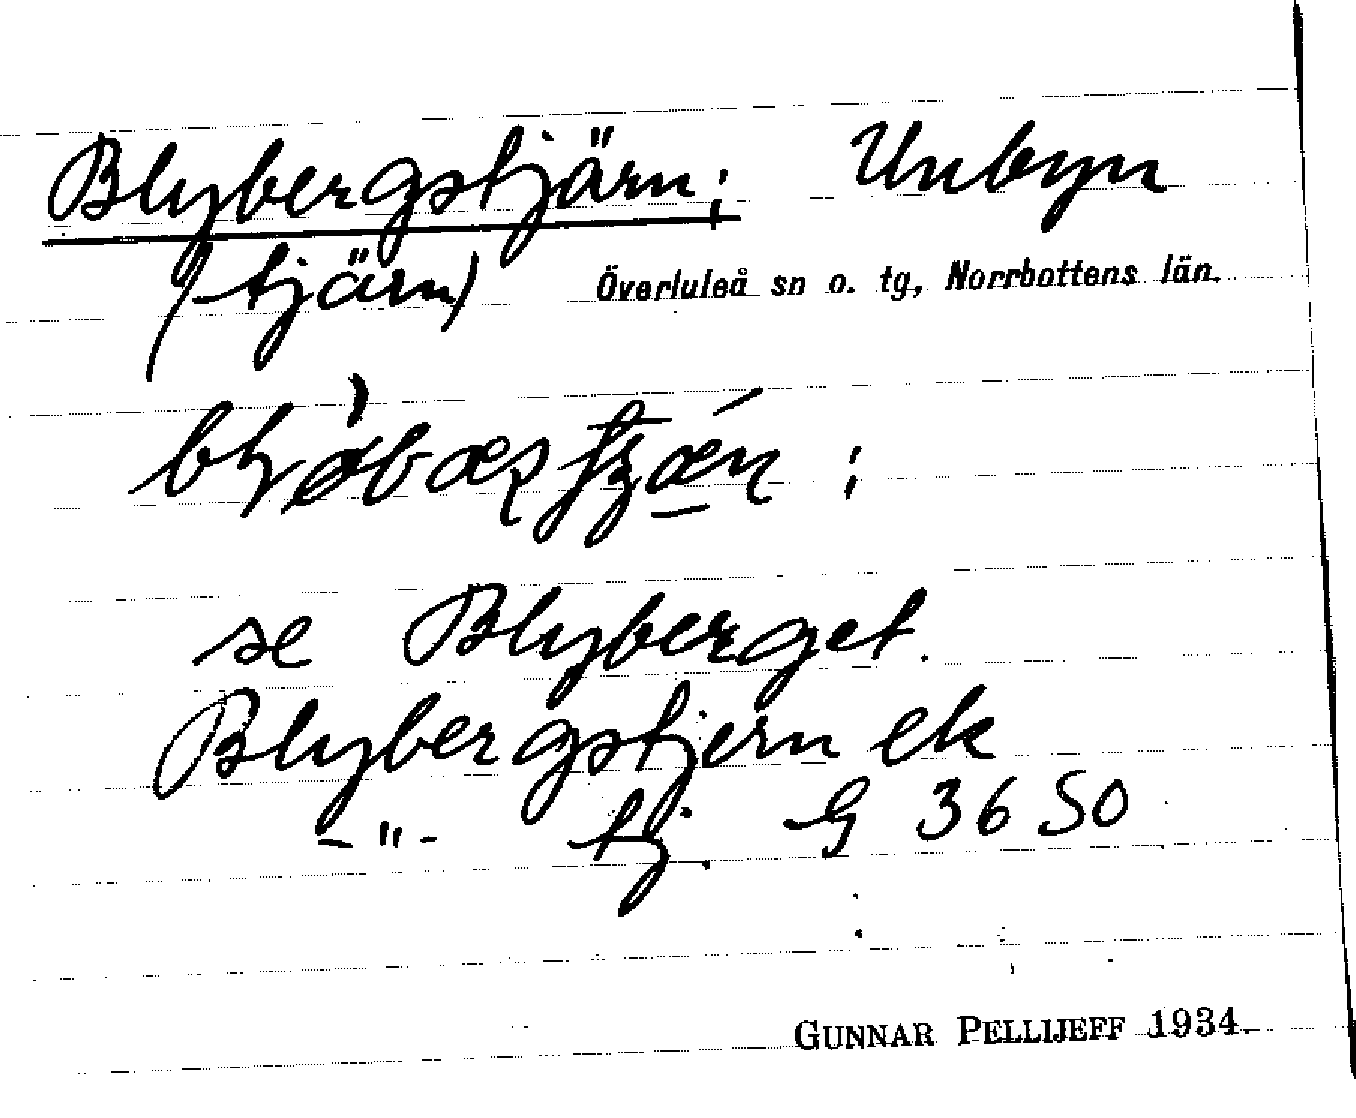 Blybergstjärn; Unbyn
(-tjärn) Överluleå sn o. tg, Norrbottens län.
;
se Blyberget.
Blybergstjern ek
-"- tj. G 3650
GUNNAR PELLIJEFF 1934.